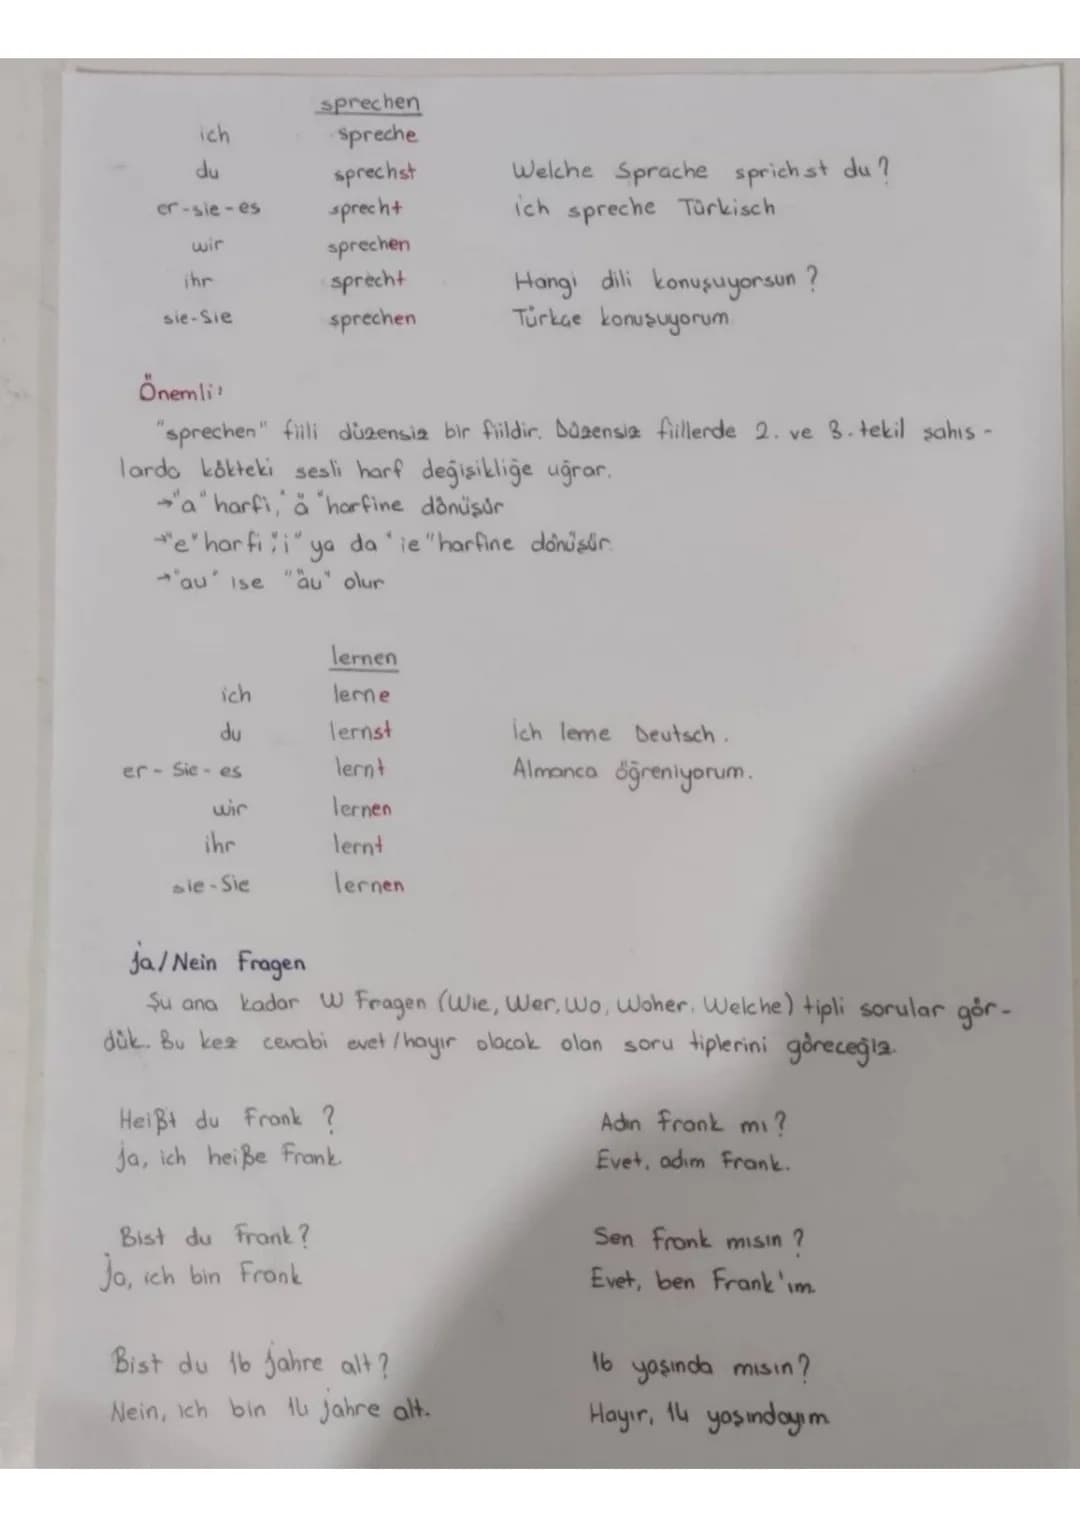 sprechen
ich spreche
du sprechst Welche Sprache sprichst du?
er-sie-es sprecht ich spreche Türkisch
wir sprechen
ihr sprecht Hangi dili konuşuyorsun?
sie-Sie sprechen Türkçe konuşuyorum
Önemli:
"sprechen" fiili düzensiz bir fiildir. Düzensiz fiillerde 2. ve 3. tekil şahıs-
larda kökteki sesli harf değişikliğe uğrar.
→"a" harfi, "ä" harfine dönüşür
→"e" harfi "i" ya da "ie" harfine dönüşür.
→"au" ise "äu" olur
lernen
ich lerne
du lernst ich lerne Deutsch.
er-Sie-es lernt Almanca öğreniyorum.
wir lernen
ihr lernt
sie-Sie lernen
ja/Nein Fragen
Şu ana kadar W Fragen (Wie, Wer, Wo, Woher, Welche) tipli sorular gör-
dük. Bu kez cevabi evet/hayır olacak olan soru tiplerini göreceğiz.
Heißt du Frank? Adın Frank mı?
ja, ich heiße Frank. Evet, adım Frank.
Bist du Frank? Sen Frank mısın?
Ja, ich bin Frank Evet, ben Frank'ım.
Bist du 16 jahre alt? 16 yaşında mısın?
Nein, ich bin 14 jahre alt. Hayır, 14 yaşındayım